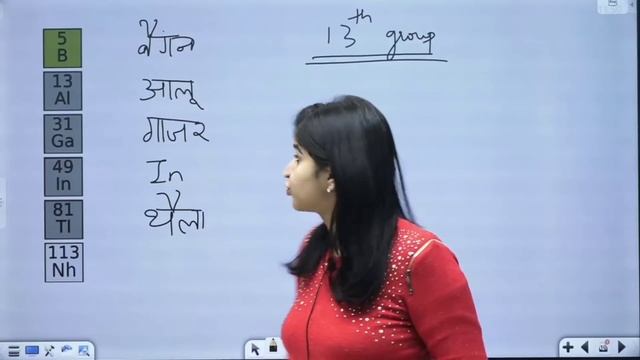 13th group
5
B
बैंगन
13
Al
आलू
31
Ga
गाजर
49
In
In
81
Tl
थैला
113
Nh